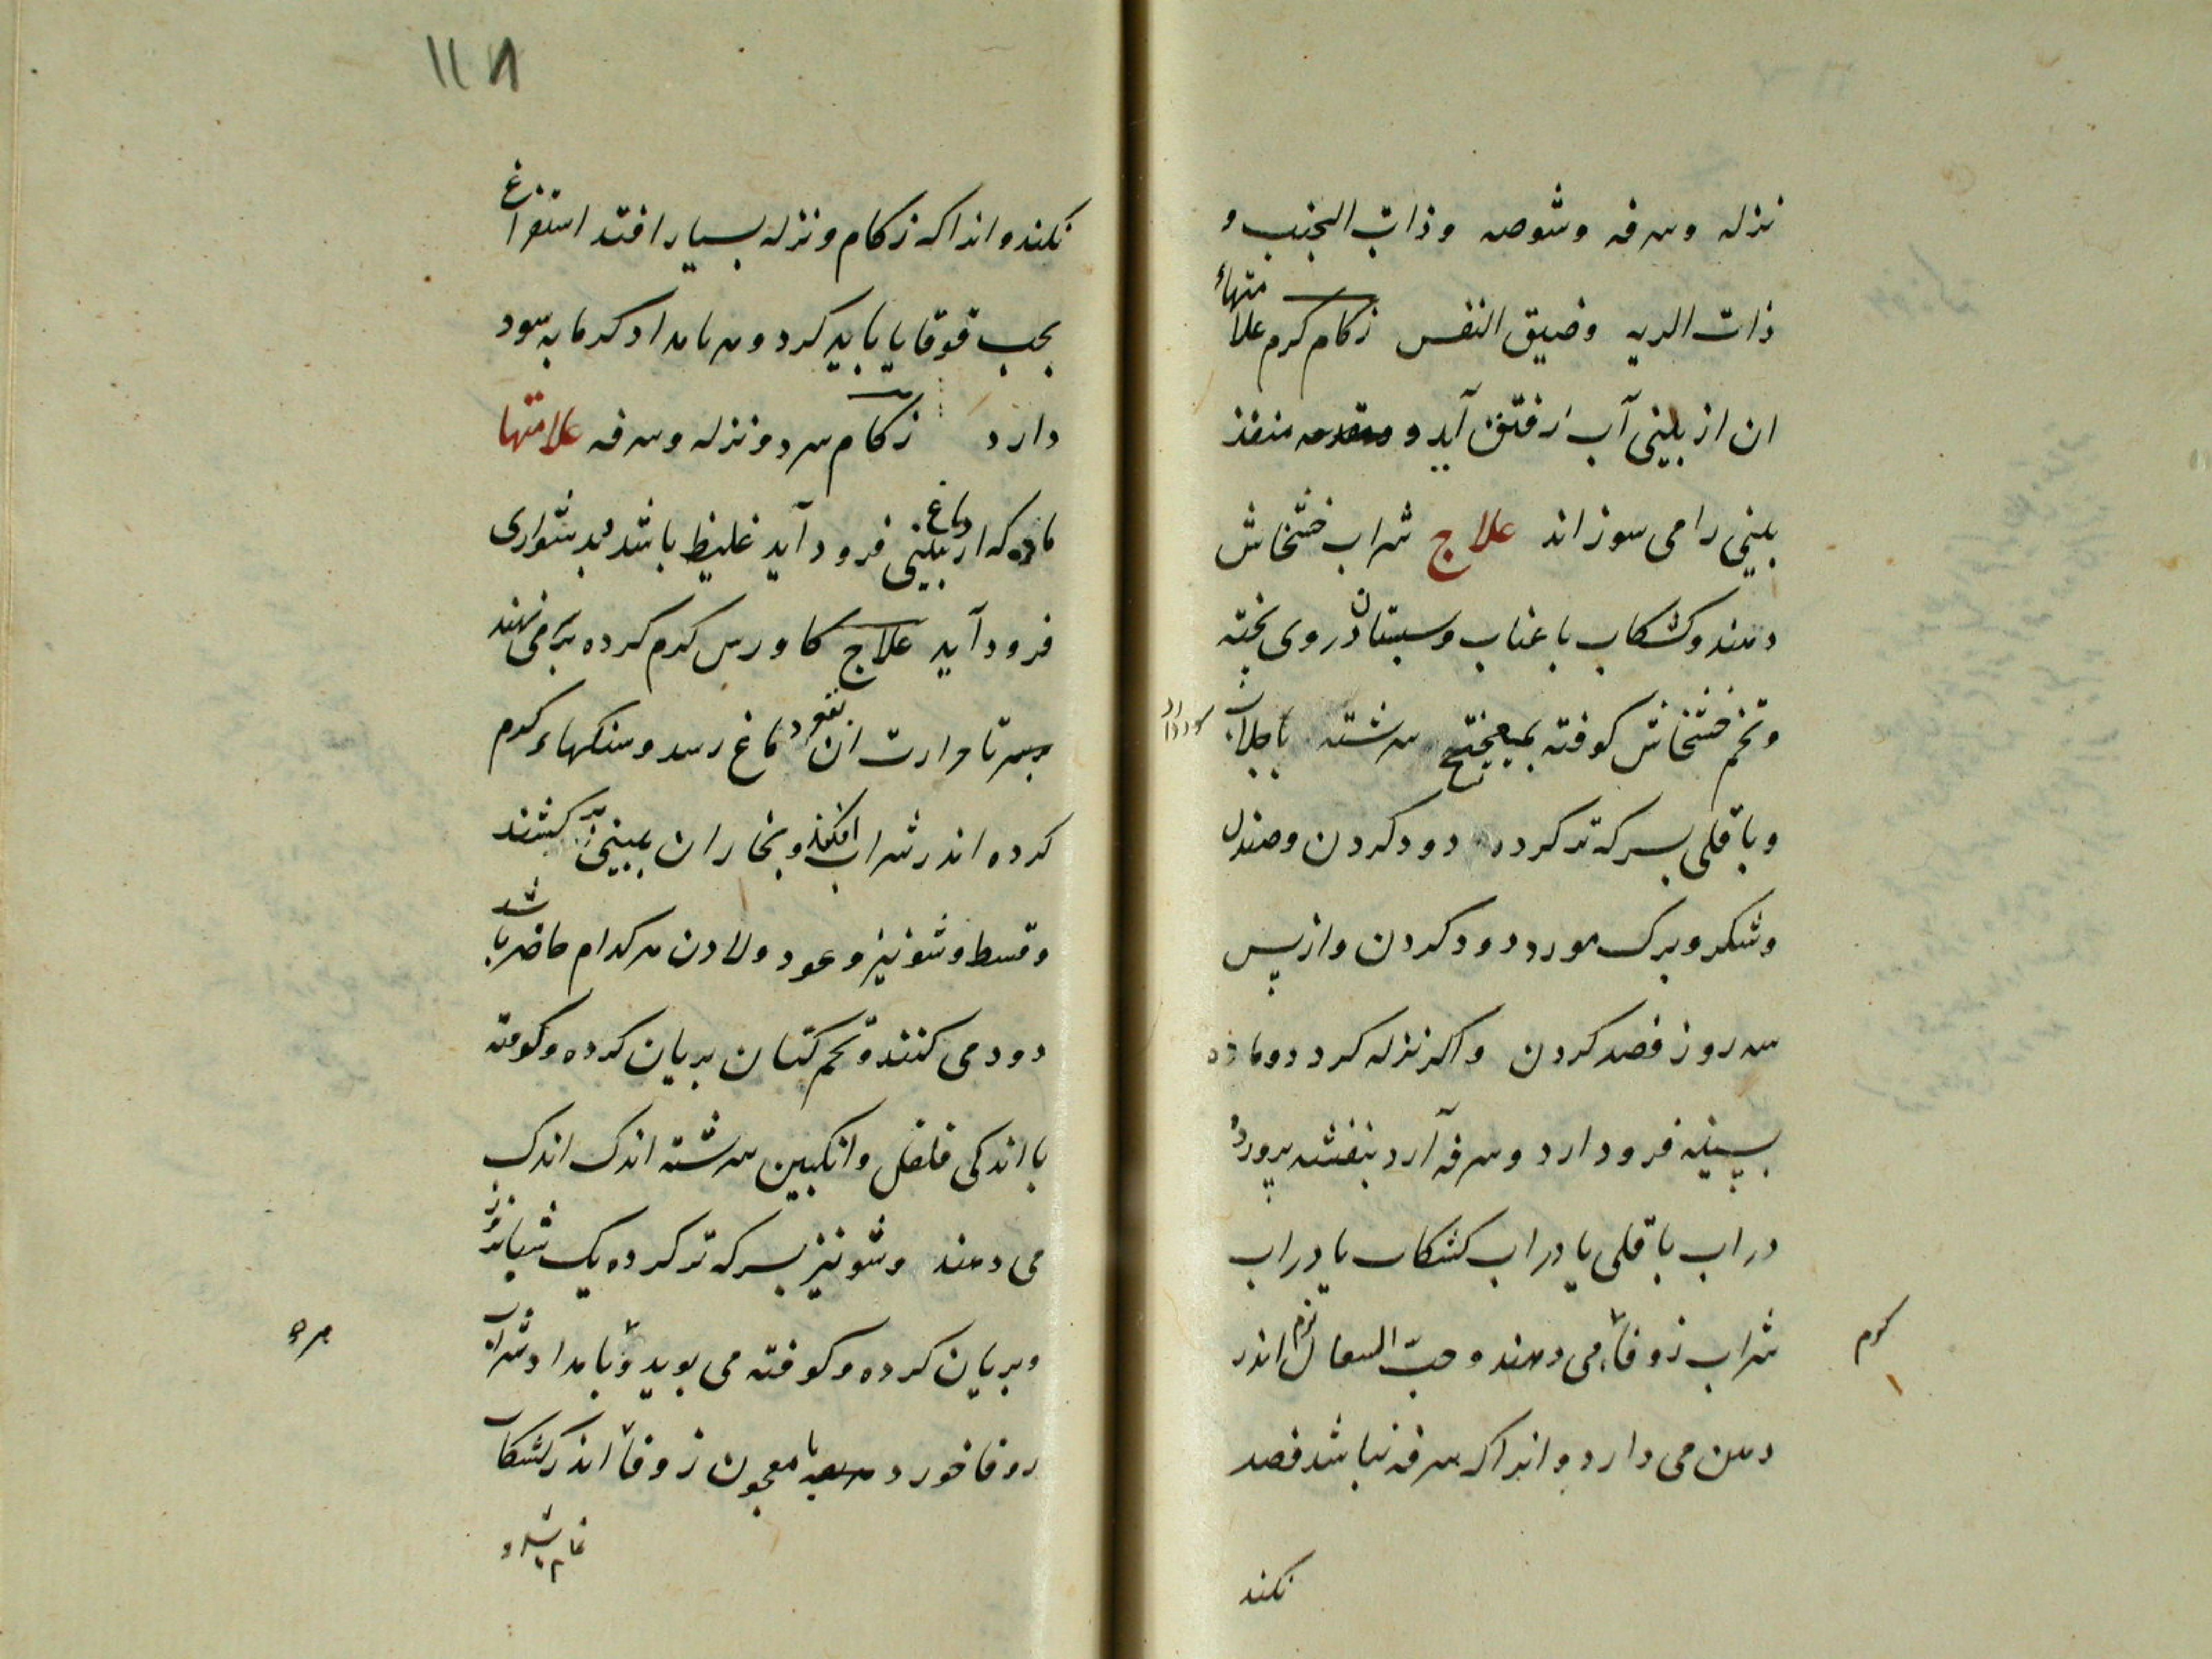 نزله وسرفه وشوصه وذات الجنب و
ذات الریه وضیق النفس زکام کرم علامتهاء
ان از بینی آب رفتق آید و منفذ
بینی را می سوزاند علاج شراب خشخاش
دهند وکشکاب با عناب وسبستان دروی پخته
وتخم خشخاش کوفته بمیبختج سرشته باجلاب
وباقلی بسرکه تر کرده دود کردن وصندل
وشکر وبرک مورد دود کردن واز پس
سه روز فصد کردن واکر نزله کردد وماده
بسینه فرود ارد وسرفه آرد بنفشه پرورده
در اب باقلی یا در اب کشکاب یا در اب
شراب زوفا می دهند وحبّ السعال نرم اندر
دهن می دارد وانرا که سرفه نباشد فصد
نکند
کرم
۱۱۸
نکند وانرا که زکام ونزله بسیار افتد استفراغ
بحب قوقایا باید کرد وهر بامداد کرمابه سود
دارد زکام سرد ونزله وسرفه علامتها
ماده که از دماغ ببینی فرود آید غلیظ باشد بدشواری
فرود آید علاج کاورس کرم کرده بر می نهند
بسر تا حرارت ان بقعر دماغ رسد وسنکهاء کرم
کرده اندر شراب افکنند وبخار ان ببینی بر کشند
وقسط وشونیز وعود ولادن هر کدام حاضر باشد
دود می کنند وتخم کتان بریان کرده وکوفته
با اندکی فلفل وانکبین سرشته اندک اندک
می دهند وشونیز بسرکه تر کرده یک شبانروز
وبریان کرده وکوفته می بوید وبامداد شراب
زوفا خورد یا معجون زوفا اندر کشکاب